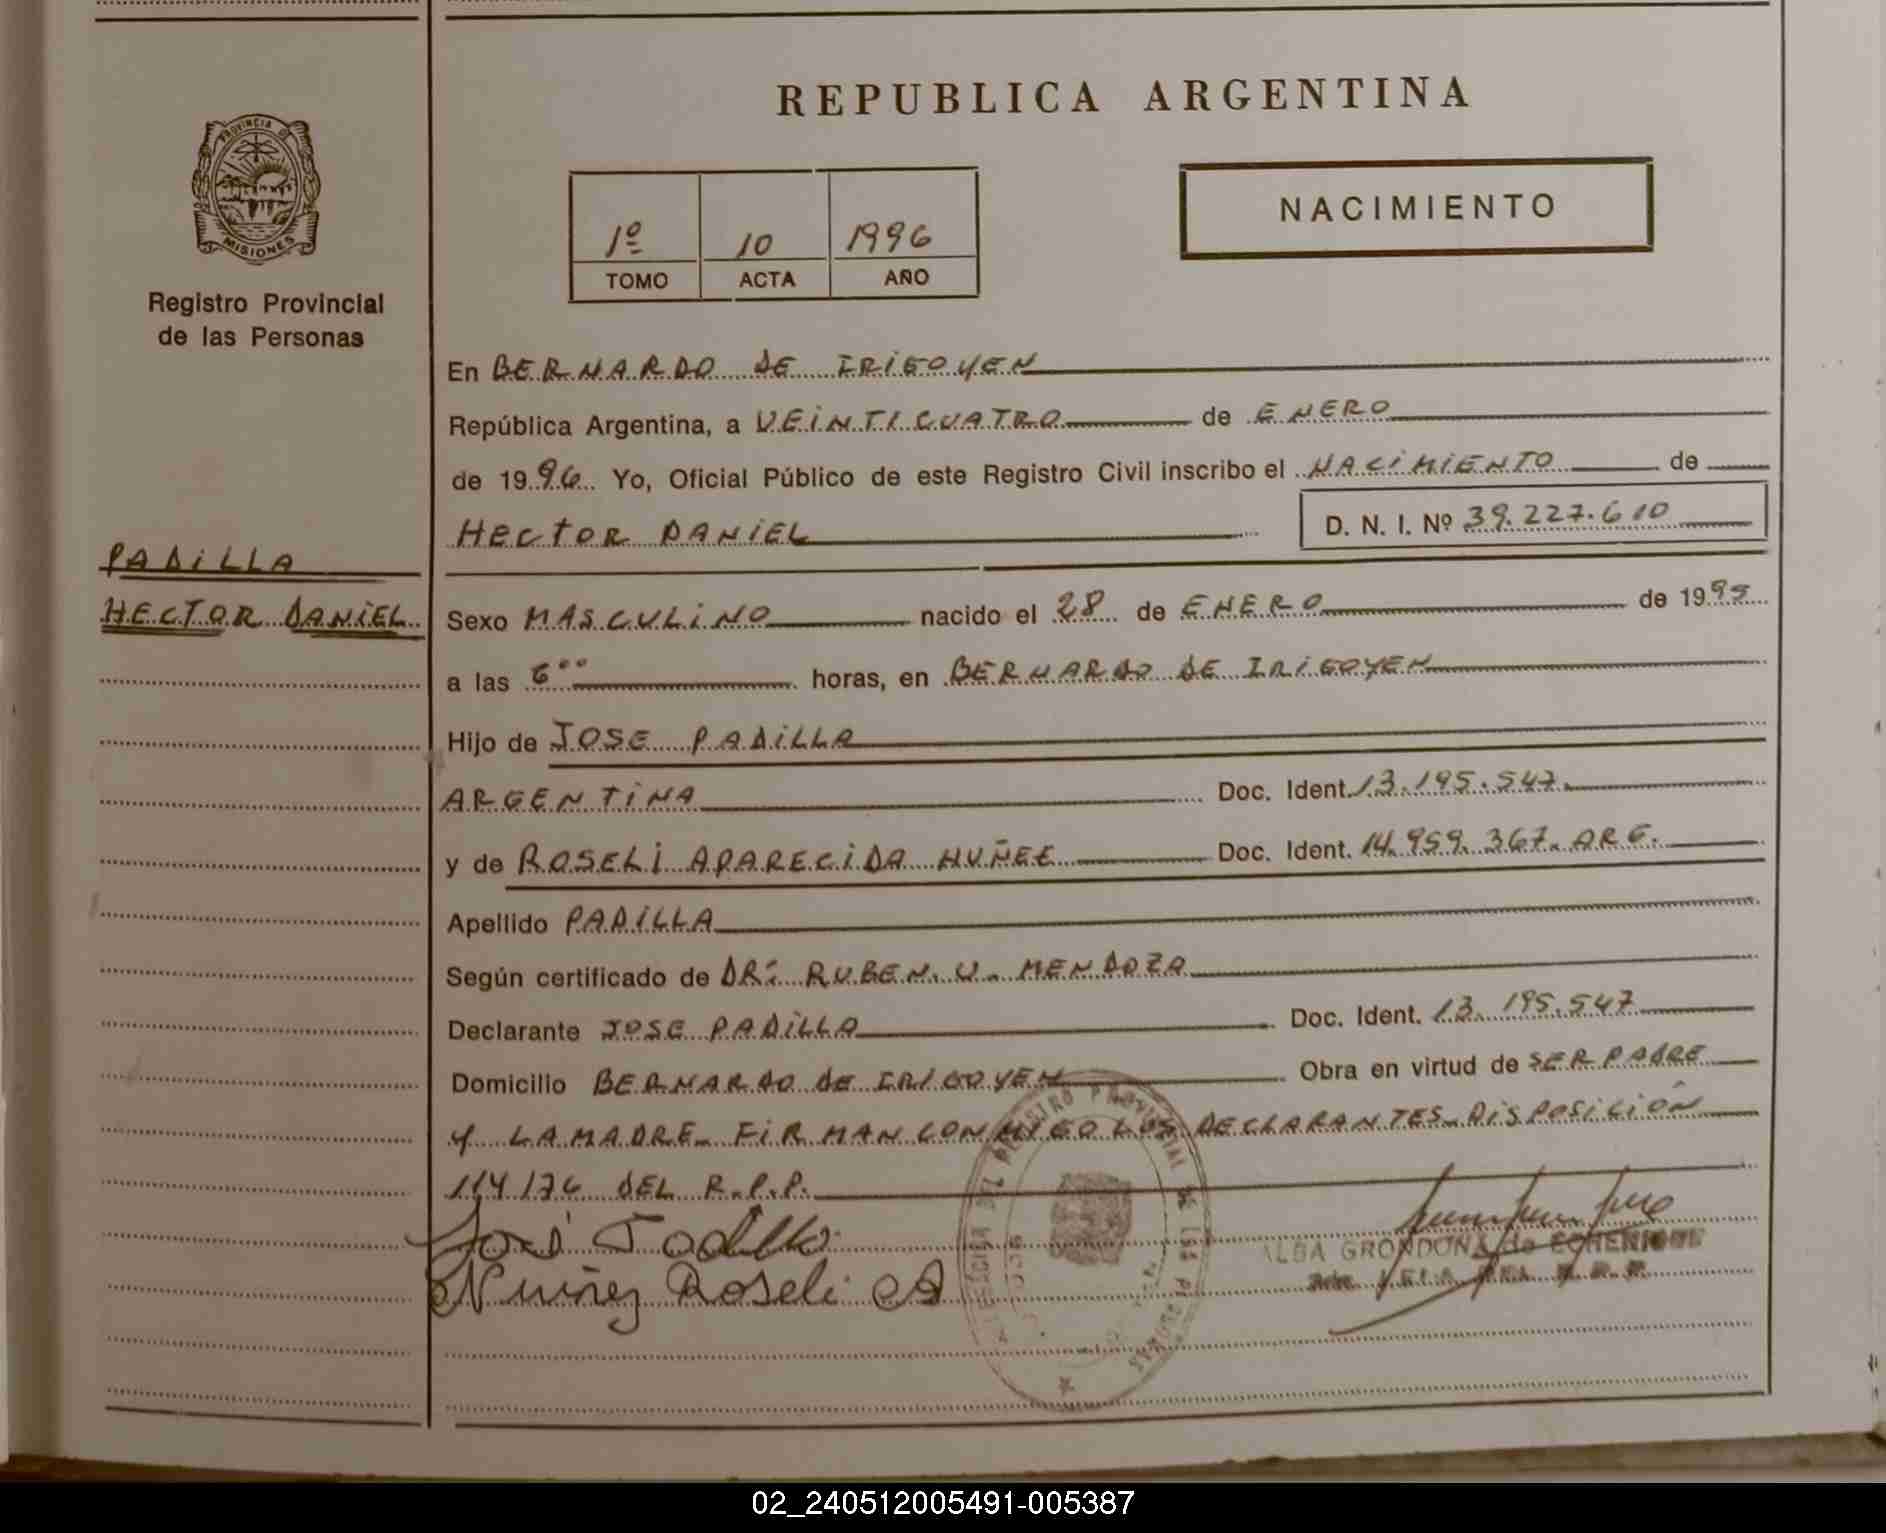 REPUBLICA ARGENTINA
PROVINCIA DE
MISIONES
Registro Provincial
de las Personas
1º 10 1996
TOMO ACTA AÑO
NACIMIENTO
En BERNARDO DE IRIGOYEN
República Argentina, a VEINTICUATRO de ENERO
de 1996. Yo, Oficial Público de este Registro Civil inscribo el NACIMIENTO de
HECTOR DANIEL D. N. I. Nº 39.227.610
PADILLA
HECTOR DANIEL
Sexo MASCULINO nacido el 28 de ENERO de 1995
a las 6⁰⁰ horas, en BERNARDO DE IRIGOYEN
Hijo de JOSE PADILLA
ARGENTINA Doc. Ident. 13.195.547.
y de ROSELI APARECIDA NUÑEZ Doc. Ident. 14.959.367. ARG.
Apellido PADILLA
Según certificado de DR: RUBEN. U. MENDOZA
Declarante JOSE PADILLA Doc. Ident. 13.195.547
Domicilio BERNARDO DE IRIGOYEN Obra en virtud de SER PADRE
Y LA MADRE. FIRMAN CONMIGO LOS DECLARANTES. DISPOSICIÓN
114/76 DEL R.P.P.
José Padilla
Nuñez Roseli
ALBA GRONDONA de ECHENIQUE
DEL REGISTRO PROVINCIAL DE LAS PERSONAS
02_240512005491-005387